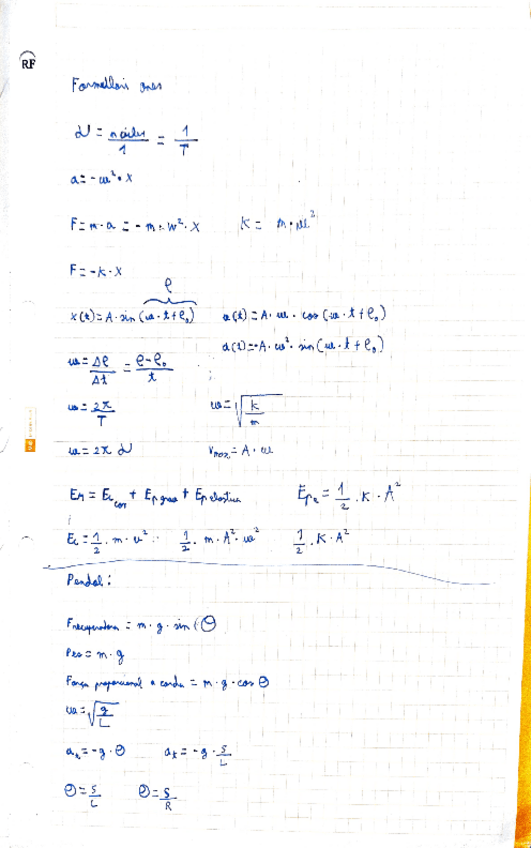 RF
Formulari ones
ν = n cicles / 1 = 1/T
a = -ω² · x
F = m · a = - m · ω² · x    K = m · ω²
F = -k · x
φ
x(t) = A · sin (ω · t + φ₀)    v(t) = A · ω · cos (ω · t + φ₀)
a(t) = -A · ω² · sin (ω · t + φ₀)
ω = Δφ/Δt = φ-φ₀/t
ω = 2π/T    ω = √(k/m)
ω = 2π ν    Vmax = A · ω
EM = Ec + Ep grav + Ep elastica    Epe = 1/2 · K · A²
Ec = 1/2 · m · v²    1/2 · m · A² · ω²    1/2 · K · A²
Pendol:
Frecuperadora = m · g · sin (θ
Pes = m · g
Força proporcional a corda = m · g · cos θ
ω = √(g/L)
at = -g · θ    at = -g · S/L
θ = S/L    θ = S/R